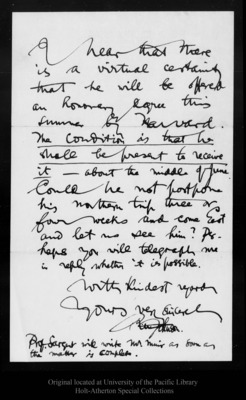 I hear that there
is a virtual certainty
that he will be offered
an honorary degree this
summer by Harvard.
The condition is that he
shall be present to receive
it — about the middle of June.
Could he not postpone
his northern trip three or
four weeks and come East
and let us see him? Per-
haps you will telegraph me
in reply whether it is possible.
With kindest regards
Yours very sincerely
Prof. Sargent will write Mr. Muir as soon as
the matter is complete.
Original located at University of the Pacific Library
Holt-Atherton Special Collections